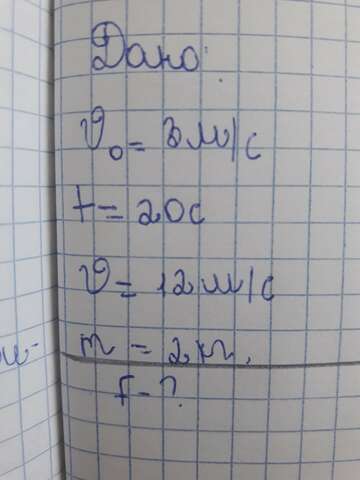 Дано:
υ₀ = 3 м/с
t = 20с
υ = 12 м/с
m = 2 кг.
f - ?